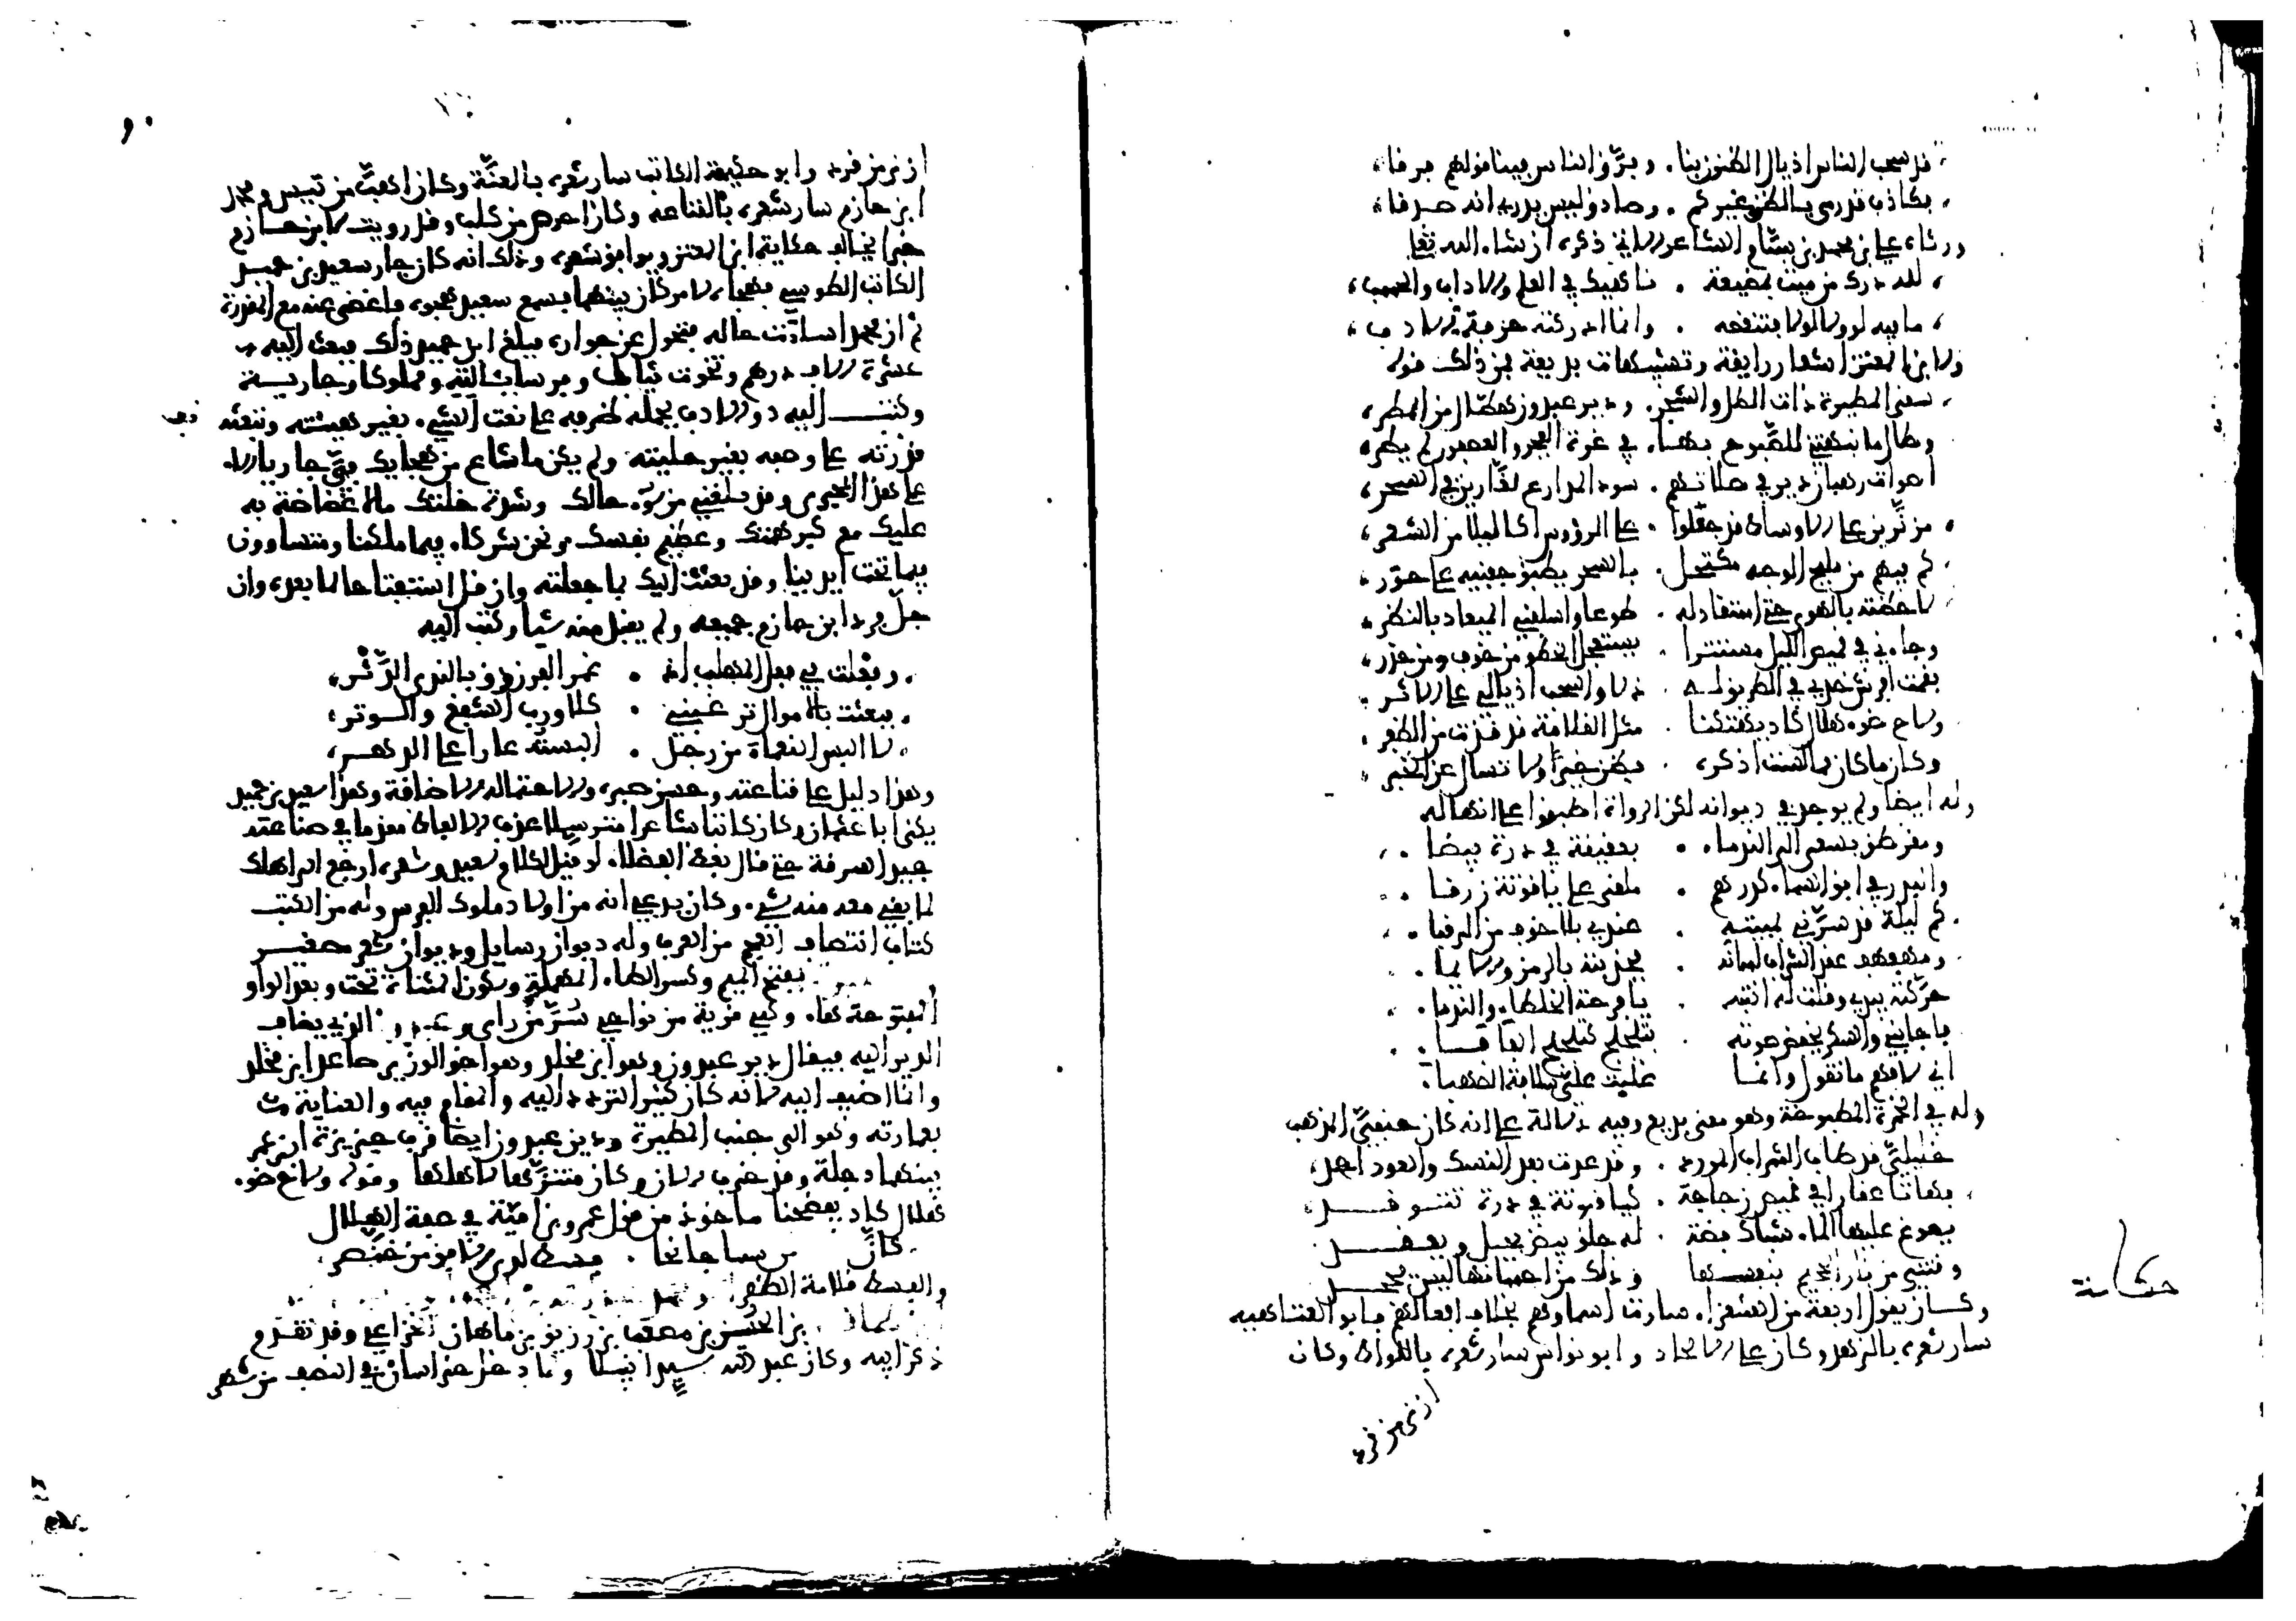 قد سحب الناس أذيال الظنون بنا . وفرق الناس فينا قولهم فرقا
فكاذب قد رمى بالظن غيركم . وصادق ليس يدري انه صدقا
ورثاه علي بن محمد بن بسام الشاعر الاتي ذكره ان شاء الله تعلى
لله درك من ميت بمضيعة . ناهيك في العلم والاداب والحسب
ما فيه لو ولا لولا فتنقصه . وانما ادركته حرفة الادب
ولابن المعتز اشعار رايقة وتشبيهات بديعة فمن ذلك قوله
سقى المطيرة ذات الظل والشجر . ودير عبدون هطال من المطر
وطال ما نبهتني للصبوح بها . في غرة الفجر والعصفور لم يطر
اصوات رهبان دير في صلاتهم . سود المدارع نعارين في السحر
مزنرين على الاوساط قد جعلوا . على الرؤوس اكاليلا من الشعر
كم فيهم من مليح الوجه مكتحل . بالسحر يطبق جفنيه على حور
لاحظته بالهوى حتى استقاد له . طوعا واسلفني الميعاد بالنظر
وجاءني في قميص الليل مستترا . يستعجل الخطو من خوف ومن حذر
فقمت افرش خدي في الطريق له . ذلا واسحب اذيالي على الاثر
ولاح ضوء هلال كاد يفضحنا . مثل القلامة قد قدت من الظفر
وكان ما كان مما لست اذكره . فظن خيرا ولا تسال عن الخبر
وله ايضا ولم يوجد في ديوانه لكن الرواة اطبقوا على انها له
ومقرطق يسعى الى الندماء . بعقيقة في درة بيضا
والبدر في افق السماء كدرهم . ملقى على ياقوتة زرقا
كم ليلة قد سرني بمبيته . عندي بلا خوف من الرقبا
ومهفهف عقد الشراب لسانه . فحديثه بالرمز والايما
حركته بيدي وقلت له انتبه . يا فرحة الخلطاء والندما
فاجابني والسكر يخفض صوته . بتلجلج كتلجلج الفافا
اني لافهم ما تقول وانما غلبت علي سلافة الصهبا
وله في الخمرة المطبوخة وهو معنى بديع وفيه دلالة على انه كان حنفي المذهب
خليلي قد طاب الشراب المورد . وقد عدت بعد النسك والعود احمد
فهاتا عقارا في قميص زجاجة . كياقوتة في درة تتوقد
يصوغ عليها الماء شباك فضة . له حلق بيض تحل وتعقد
وقتني من نار الجحيم بنفسها وذلك من احسانها ليس يجحد
وكان يقول اربعة من الشعراء سارت اسماوهم بخلاف افعالهم فابو العتاهيه
سار شعره بالزهد وكان على الالحاد وابو نواس سار شعره باللواط وكان
ازنى من قرد
حكاية
ازنى من قرد وابو حكيمة الكاتب سار شعره بالعنة وكان اهب من تيس ومحمد
ابن حازم سار شعره بالقناعة وكان احرص من كلب وقد رويت لابن حازم
خبرا يخالف حكاية ابن المعتز ويوافق شعره وذلك انه كان جار سعيد بن حميد
الكاتب الطوسي فهجاه لامر كان بينهما فسمع سعيد هجوه فاغضى عنه مع القدرة
ثم ان محمدا ساءت حاله فتحول عن جواره فبلغ ابن حميد ذلك فبعث اليه
عشرة الاف درهم وتخوت ثياب وفرسا بالته ومملوكا وجارية
وكتب اليه ذو الادب يحمله ظرفه على نعت الشيء بغير هيئته وتبعثه
قدرته على وصفه بغير حليته ولم يكن ما شاع من هجايك في جاريا الا
على هذا المجرى وقد بلغني من سوء حالك وشدة خلتك ما لا غضاضة به
عليك مع كبر همتك وعظيم نفسك ونحن شركاء فيما ملكنا ومتساوون
فيما تحت ايدينا وقد بعثت اليك بما جعلته وان قل استفتاحا لما بعده وان
جل فرد ابن حازم جميعه ولم يقبل منه شيا وكتب اليه
وفعلت بي فعل المهلب اذ . غمر الفرزدق بالندى الدثر
فبعثت بالاموال ترغبني . كلا ورب الشفع والوتر
لا البس النعماء من رجل . البسته عارا على الدهر
وهذا دليل على قناعته وحسن صبره واحتماله الاضافة وهذا سعيد بن حميد
يكنى ابا عثمان وكان كاتبا شاعرا مترسلا عذب الالفاظ مقدما في صناعته
جيد السرقة حتى قال بعض الفضلاء لو قيل لكلام سعيد وشعره ارجع الى اهلك
لما بقي معه منه شيء وكان يدعي انه من اولاد ملوك الفرس وله من الكتب
كتاب انتصاف العجم من العرب وله ديوان رسايل وديوان شعر صغير
بفتح الميم وكسر الطاء المهملة وسكون المثناة تحت وبعد الواو
المفتوحة هاء وهي قرية من نواحي سر من راى وعبدون الذي يضاف
الدير اليه فيقال دير عبدون وهو ابن مخلد وهو اخو الوزير صاعد ابن مخلد
وانما اضيف اليه لانه كان كثير التردد اليه والمقام فيه والعناية
بعمارته وهو الى جنب المطيرة ودير عبدون ايضا قرب جزيرة ابن عمر
بينهما دجلة وقد خرب الان وكان متنزها لاهلها وقوله ولاح ضوء
هلال كاد يفضحنا ماخوذ من قول عمرو بن امية في صفة الهلال
كان جانحا . فسيط لدى الافق من خنصر
والفسيط قلامة الظفر
بن الحسين بن مصعب بن رزيق بن ماهان الخزاعي وقد تقدم
ذكر ابيه وكان عبد الله سيدا نبيلا ولما دخل خراسان في النصف من شهر